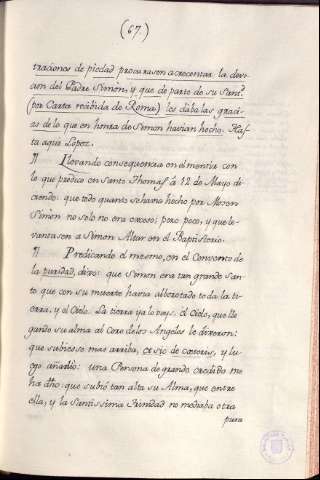 (67.)
traciones de piedad procurasen acrecentar la devo-
cion del Padre Simon, y que de parte de su Sant.d
(por Carta recibida de Roma) les daba las graci-
as de lo que en honra de Simon havian hecho. Has-
ta aqui Lopez.
¶ Llevando consequencia en el mentir con
lo que predico en Santo Thomas á 12 de Mayo di-
ciendo: que todo quanto se havia hecho por Mosen
Simon no solo no era exceso; pero poco, y que le-
vantasen a Simon Altar en el Baptisterio.
¶ Predicando el mesmo, en el Convento de
la puridad, dixo: que Simon era tan grande San-
to que con su muerte havia alborotado toda la ti-
erra, y el Cielo. La tierra ya lo veys. El Cielo, que lle-
gando su alma al Coro de los Angeles le dixeron:
que subiesse mas arriba, et sic de cæteris, y lu-
ego añadio: una Persona de grande credito me
ha dho: que subió tan alta su Alma, que entre
ella, y la Santissima Trinidad no mediaba otra
pura